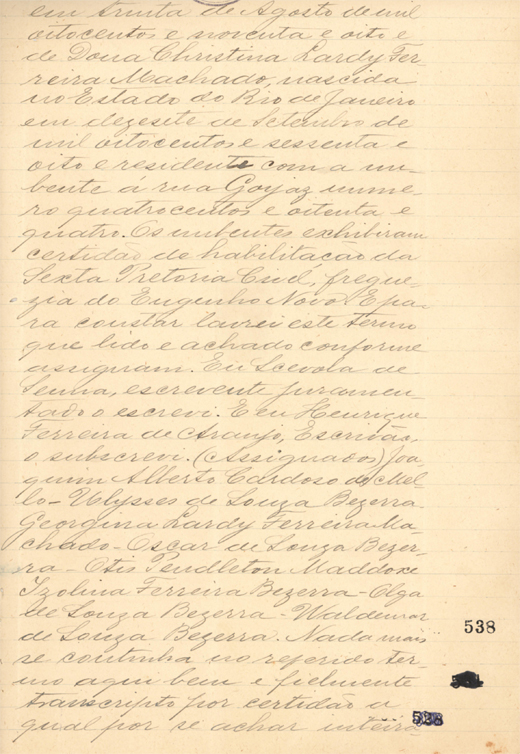 em trinta de Agosto de mil
oitocentos e noventa e oito e
de Dona Christina Lardy Fer-
reira Machado, nascida
no Estado do Rio de Janeiro
em dezesete de Setembro de
mil oitocentos e sessenta e
oito e residente com a nu-
bente a rua Goyaz nume-
ro quatrocentos e oitenta e
quatro. Os nubentes exhibiram
certidão de habilitação da
Sexta Pretoria Civel, fregue-
zia do Engenho Novo. E pa-
ra constar lavrei este termo
que lido e achado conforme
assignam. Eu Scevola de
Senna, escrevente juramen-
tado o escrevi. E eu Henrique
Ferreira de Araujo, Escrivão,
o subscrevi. (Assignados) Joa-
quim Alberto Cardoso de Mel-
lo - Ulysses de Souza Bezerra
Georgina Lardy Ferreira Ma-
chado - Oscar de Souza Bezer-
ra - Otis Pendleton Maddox
Izolina Ferreira Bezerra - Olga
de Souza Bezerra - Waldemar
de Souza Bezerra. Nada mais
538
se continha no referido ter-
mo aqui bem e fielmente
transcripto por certidão a
qual por se achar inteira
538